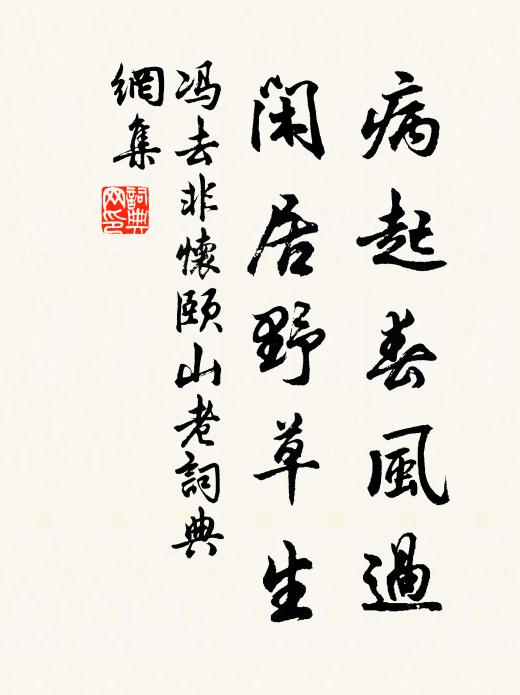 病起春風過
閑居野草生
馮去非懷頤山老詞典
網集
詞典
网印